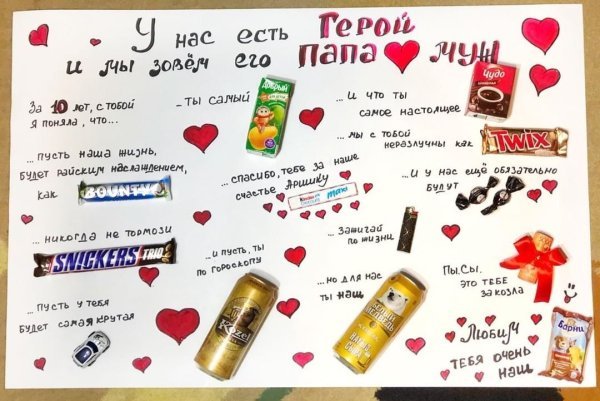 У нас есть Герой
и мы зовём его папа муж
За 10 лет, с тобой
я поняла, что...
- ты самый
Добрый
... и что ты
самое настоящее
Чудо
... мы с тобой
неразлучны как
TWIX
... пусть наша жизнь,
будет райским наслаждением,
как
BOUNTY
... спасибо, тебе за наше
счастье Аришку
Kinder
maxi
... и у нас ещё обязательно
будут
... никогда не тормози
SNICKERS
TRIO
... и пусть, ты
по гороскопу
Kozel
... Зажигай
по жизни
... но для нас
ты наш
Пы.Сы.
это тебе
за козла
... Пусть у тебя
будет самая крутая
Любим
тебя очень
наш
Барни